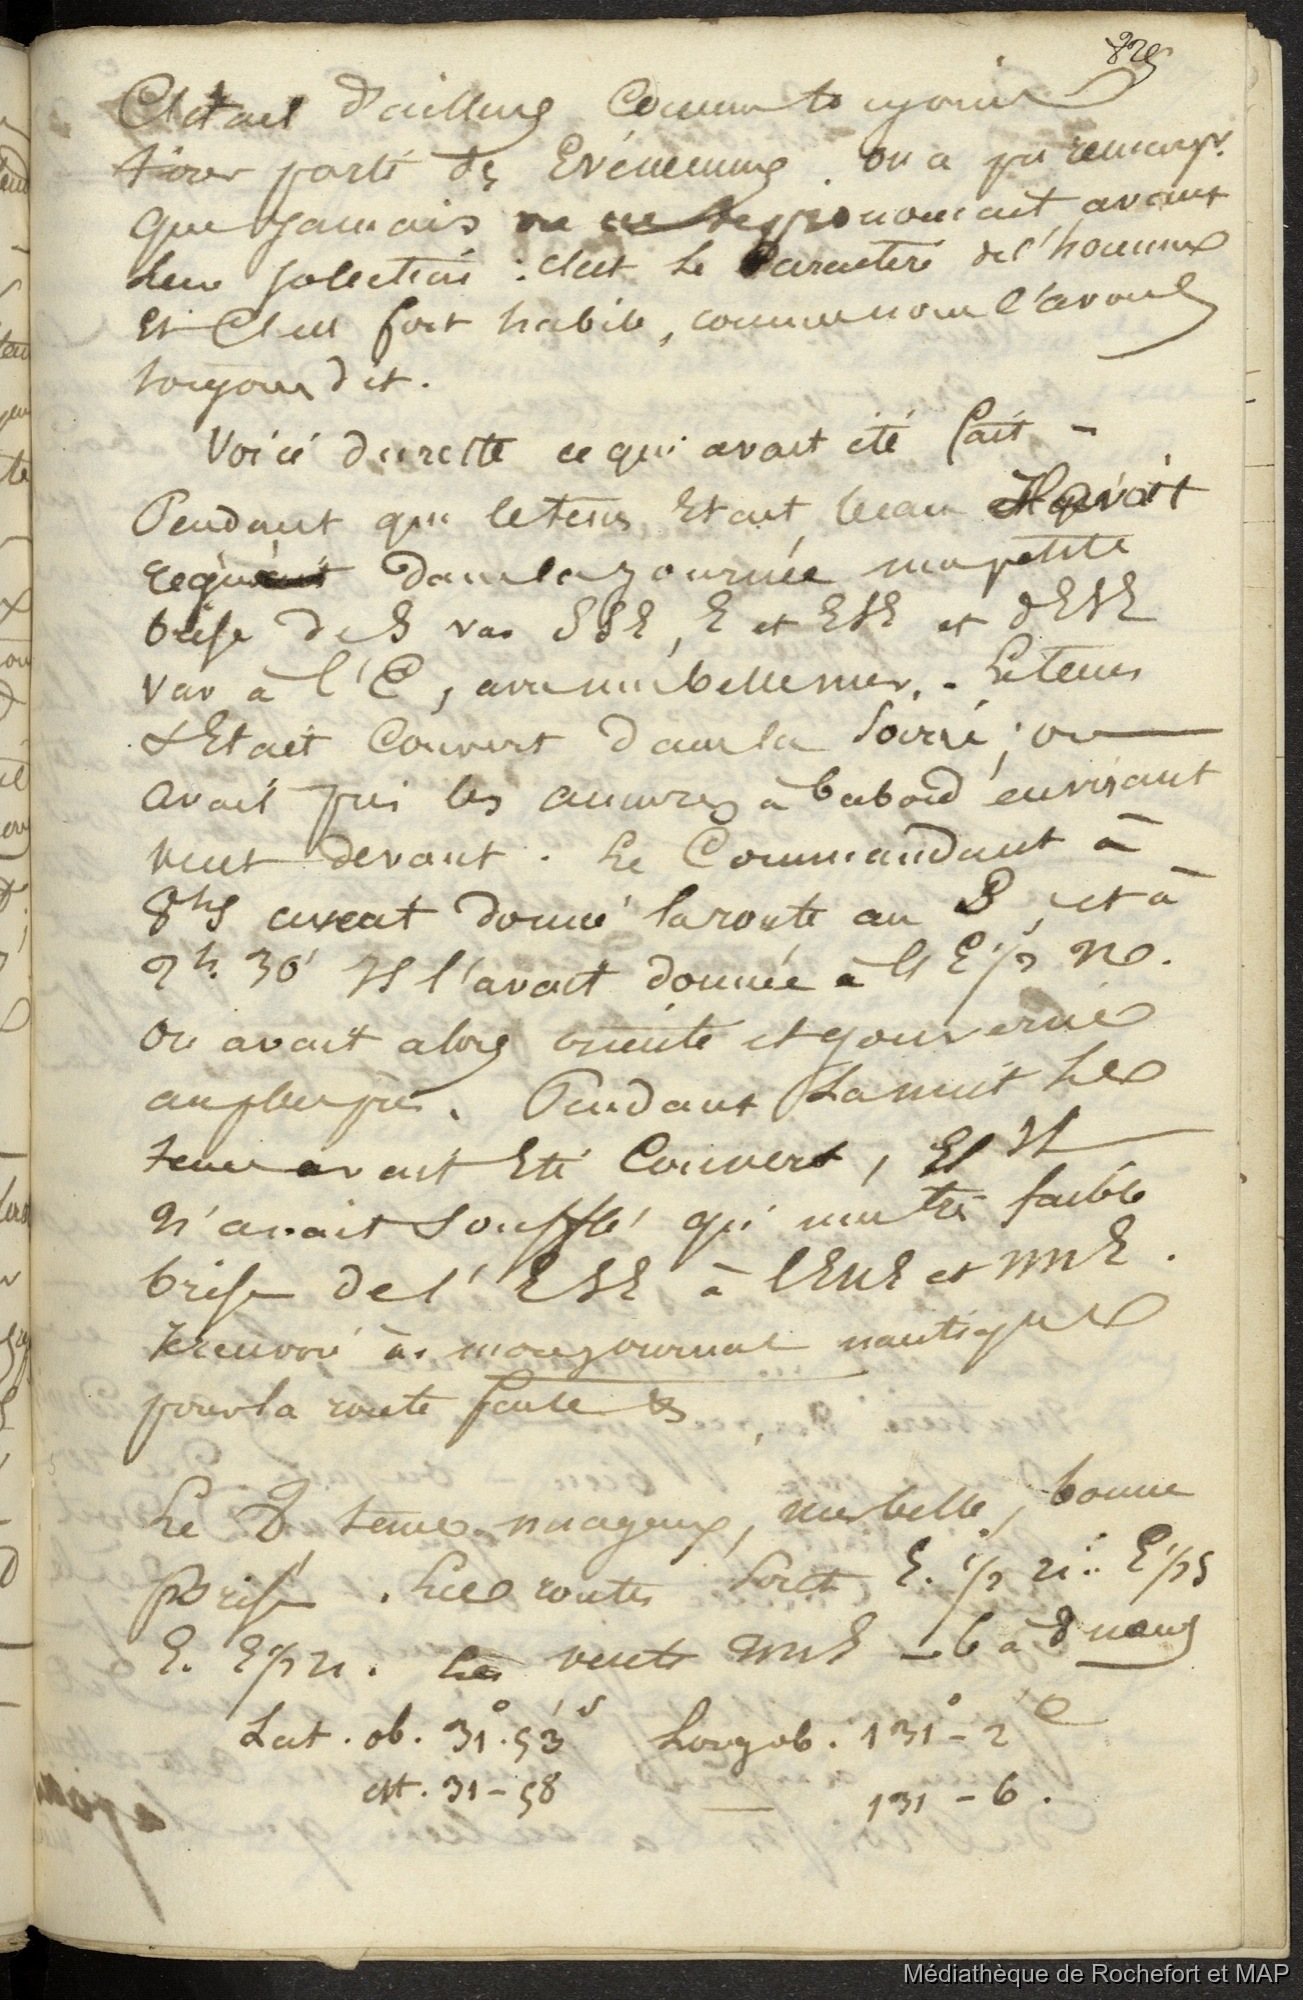 829
C'était d'ailleurs comme toujours
tirer parti des Evénemens. on a pu remarqr.
que jamais on ne se prononcait avant
leur solection : c'est le Caractere de l'homme
Et C'est fort habile, comme nous l'avons
toujours dit.
Voici du reste ce qui avait été fait -
Pendant que le tems Etait beau Il avait
regné dans la journée une petite
brise de S var SSE, E et ESE et d'ESE
var à l'E, avec une belle mer. - Le tems
s'Etait Couvert dans la Soirée ; on
avait pris les amures à babord en virant
vent devant. Le Commandant à
8hs avait donné la route au S, et à
9h. 30' Il l'avait donnée à l'E 1/4 NE.
on avait alors orienté et gouverné
au plus près. Pendant La nuit Le
tems avait Eté Couvert, Et Il
N'avait Soufflé qu'une très faible
brise de l'ESE à l'ENE et NNE.
Je renvoie à mon journal nautique
pour la route faite &
Le 8 tems nuageux, mer belle, bonne
Brise. Les routes sont E. 1/2 N. E 1/4 S
E. E 1/4 N. Les vents NNE - 6 à 8 nœuds
Lat. ob. 31°. 53' S Long ob. 131° - 2' E
est. 31 - 58 — 131 - 6.
Médiathèque de Rochefort et MAP